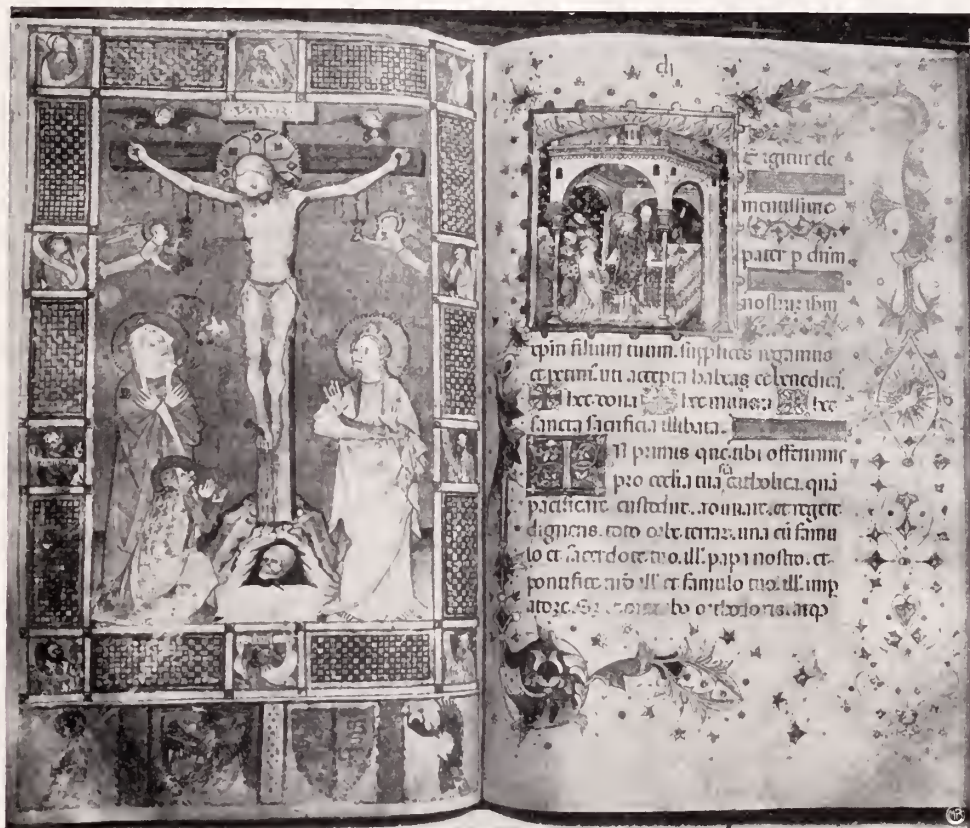 ch
E igitur cle
mentissime
pater p
nostrum ihm
xpm filium tuum. supplices rogamus
et petimus. uti accepta habeas et benedicas
hec dona hec munera hec
sancta sacrificia illibata.
IN primis que tibi offerimus
pro ecclia tua sca catholica. quā
pacificare. custodire. adunare. et regere
digneris. toto orbe terrar. una cū famu
lo et sacerdote tuo. ill. papa nostro. et
pontifice nrō ill. et famulo tuo. ill. imp
atore. orthodoxis. atq